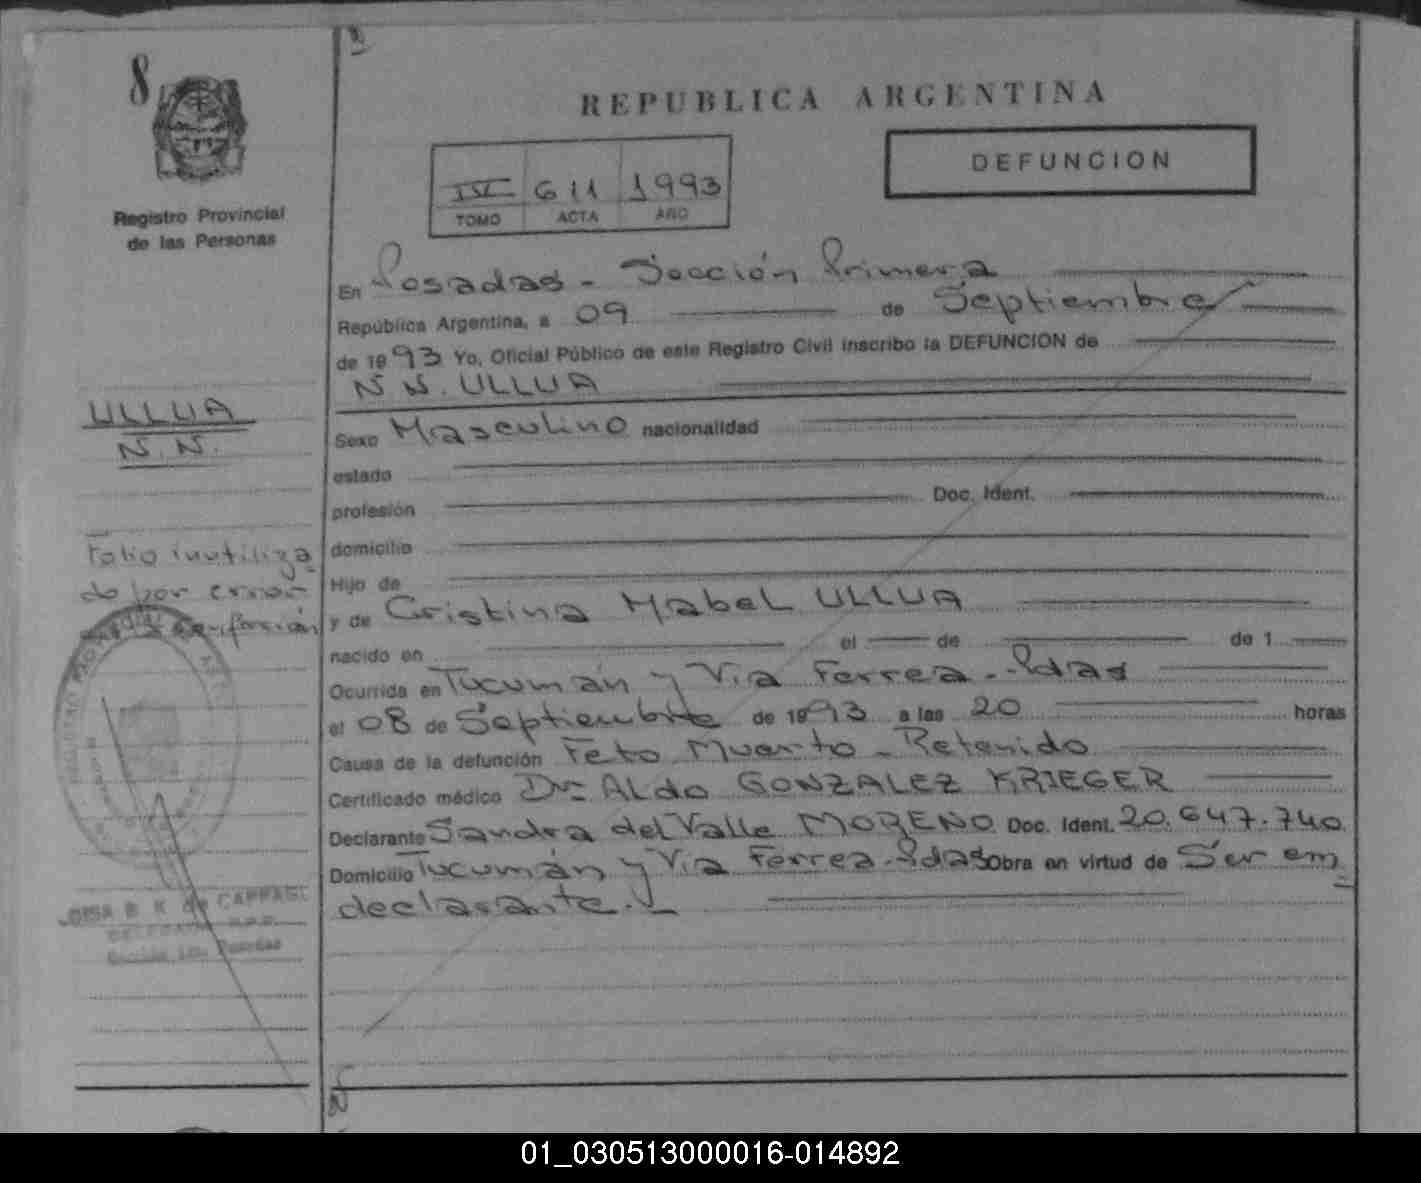 8
REPUBLICA ARGENTINA
DEFUNCION
611 1993
TOMO ACTA AÑO
Registro Provincial
de las Personas
En Posadas - Sección Primera
República Argentina, a 09 de Septiembre
de 1993 Yo, Oficial Público de este Registro Civil inscribo la DEFUNCION de
N N. ULLUA
ULLUA
N. N.
Sexo Masculino nacionalidad
estado
profesión Doc. Ident.
Folio inutiliza
do por error
domicilio
Hijo de
y de Cristina Mabel ULLUA
nacido en el de de 1
Ocurrida en Tucumán y Via Ferrea - Pdas
el 08 de Septiembre de 1993 a las 20 horas
Causa de la defunción Feto Muerto - Retenido
Certificado médico Dr. Aldo GONZALEZ KRIEGER
Declarante Sandra del Valle MORENO Doc. Ident. 20.647.740
Domicilio Tucumán y Via Ferrea - Pdas Obra en virtud de Ser em
declarante. -
B K de CAPPAGL
Sección 1ra. Posadas
01_030513000016-014892